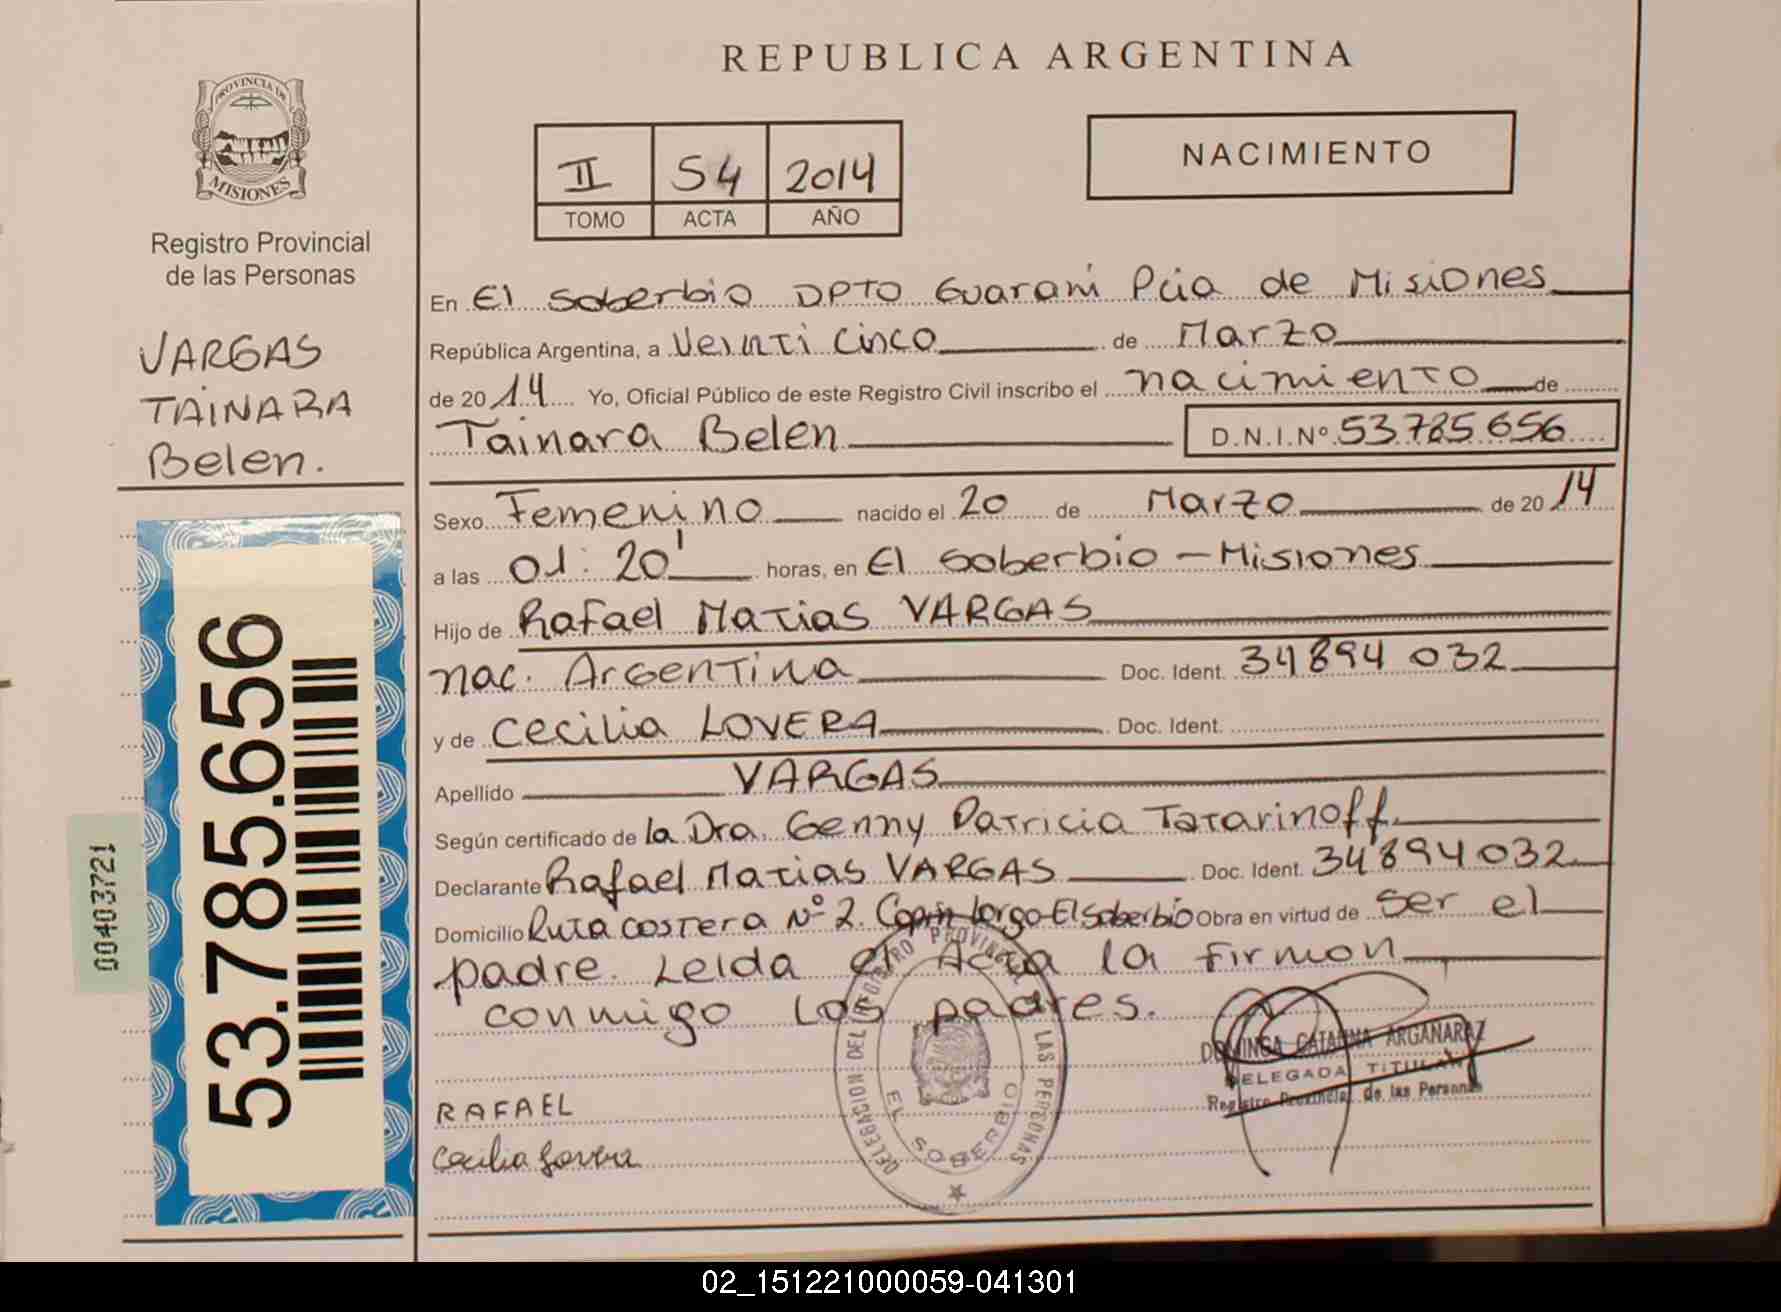 REPUBLICA ARGENTINA
PROVINCIA DE
MISIONES
Registro Provincial
de las Personas
VARGAS
TAINARA
Belen.
53.785.656
00403721
II S4 2014
TOMO ACTA AÑO
NACIMIENTO
En El Soberbio DPTO Guarani Pcia de Misiones
República Argentina, a Veinti Cinco de Marzo
de 2014 Yo, Oficial Público de este Registro Civil inscribo el nacimiento de
Tainara Belen D.N.I.Nº 53.785.656
Sexo Femenino nacido el 20 de Marzo de 2014
a las 01:20' horas, en El Soberbio - Misiones
Hijo de Rafael Matias VARGAS
nac. Argentina Doc. Ident. 34894 032
y de Cecilia LOVERA Doc. Ident.
Apellido VARGAS
Según certificado de la Dra. Genny Patricia Tatarinoff.
Declarante Rafael Matias VARGAS Doc. Ident. 34894032
Domicilio Ruta costera Nº 2. Largo-El Soberbio Obra en virtud de ser el
padre. Leida el Acta la firman
conmigo los padres.
DELEGACION DEL REGISTRO PROVINCIAL DE LAS PERSONAS
EL SOBERBIO
DOMINGA CATALINA ARGAÑARAZ
DELEGADA TITULAR
Registro Provincial de las Personas
RAFAEL
Cecilia Lovera
02_151221000059-041301